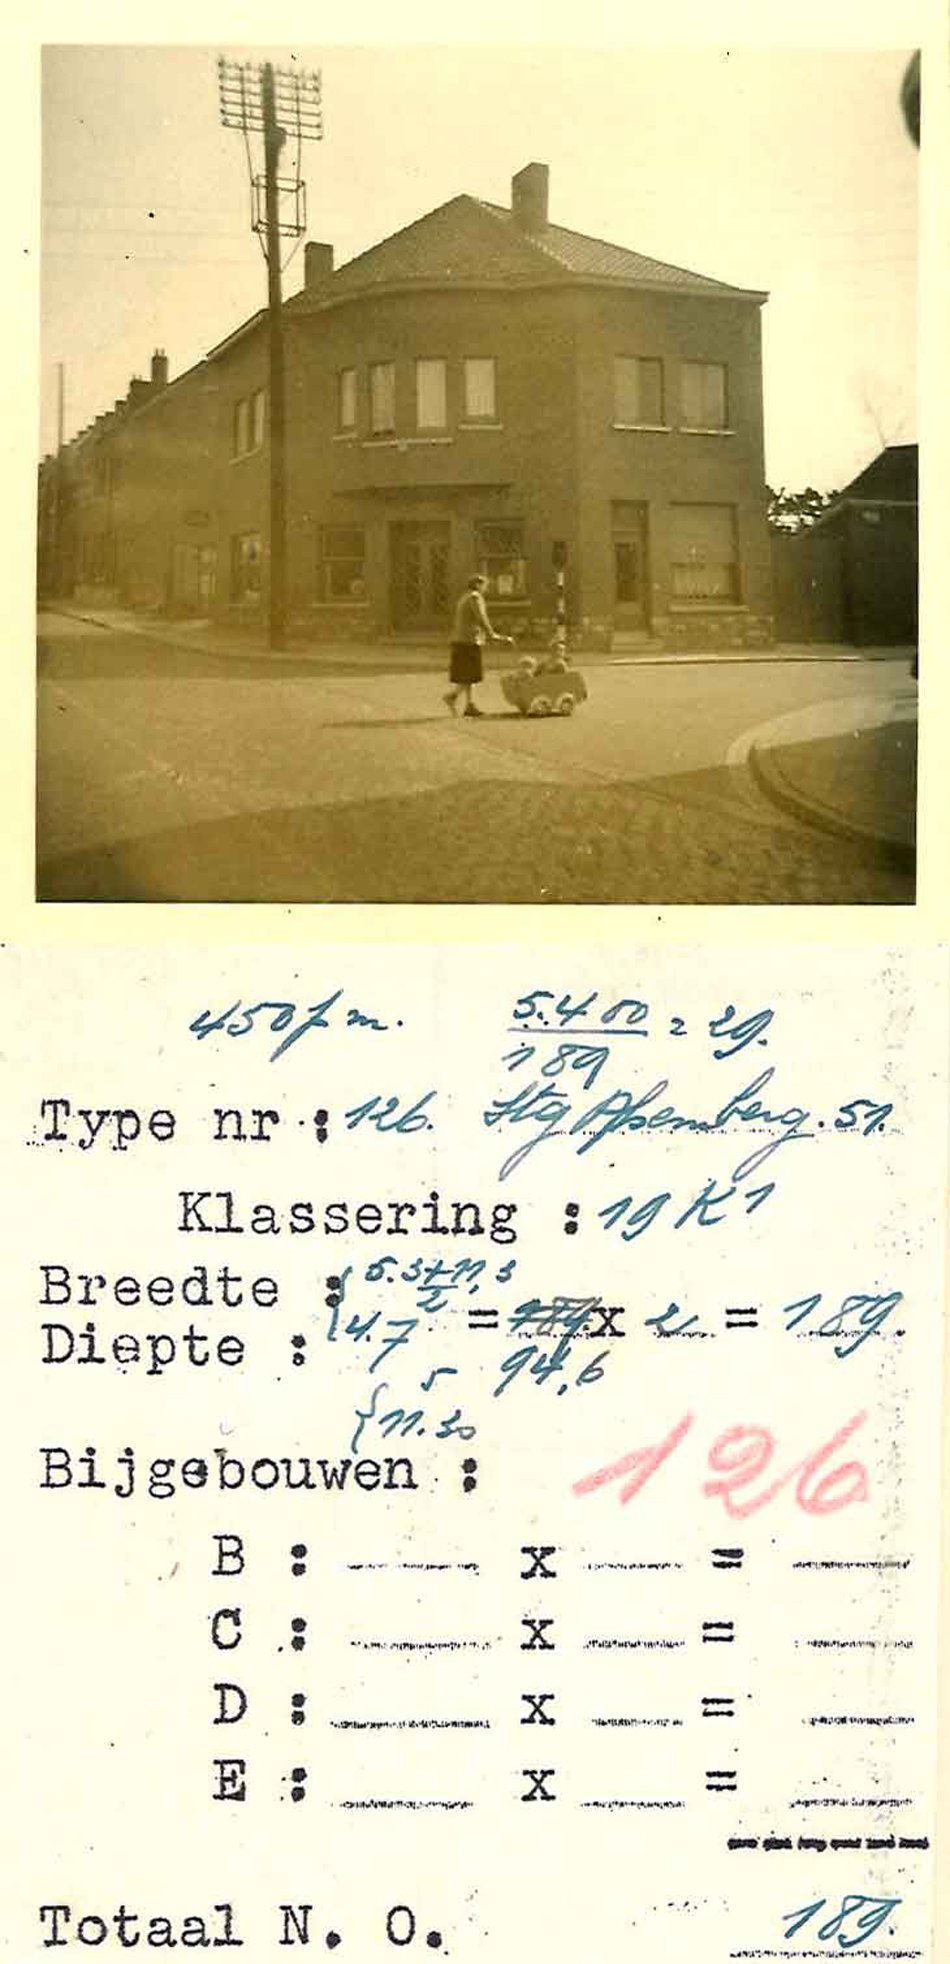 450f m. 5.400 = 29.
189
Type nr : 126. Stg Assemberg. 51.
Klassering : 19 K1
Breedte : 5.3+11,3
2
Diepte : 14.7 = x 2 = 189.
94,6
5
11.30
Bijgebouwen : 126
B : x =
C : x =
D : x =
E : x =
Totaal N. O. 189.